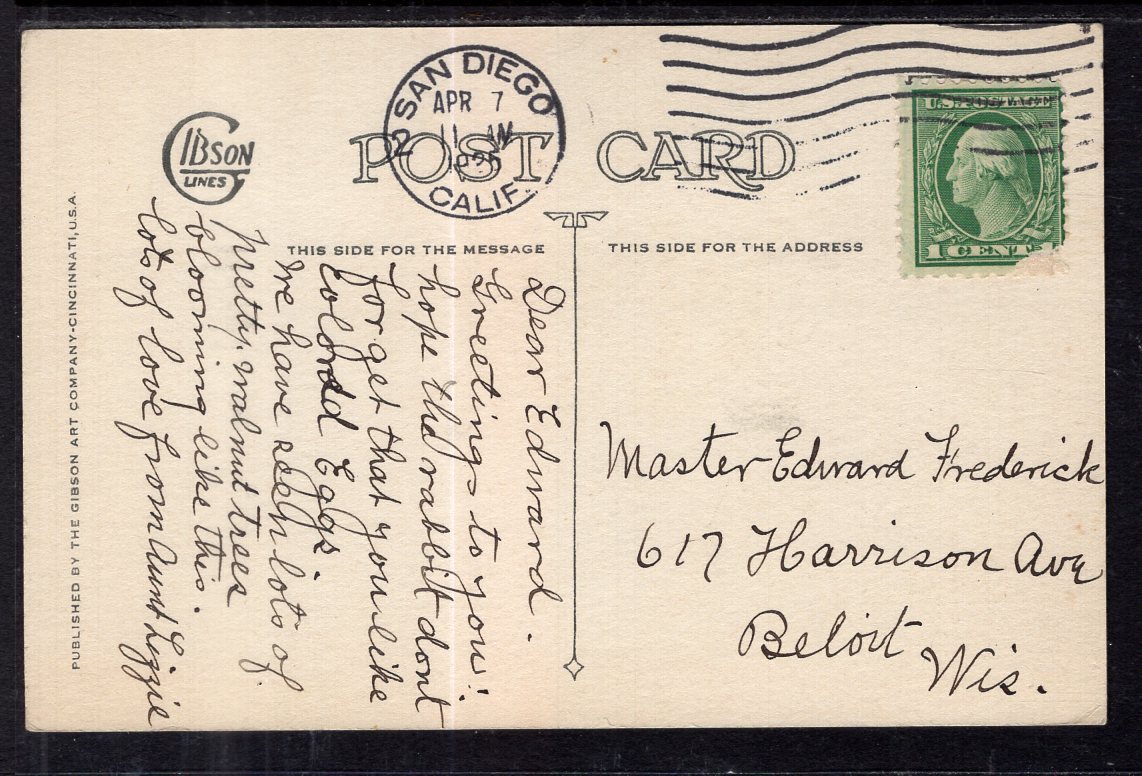 GIBSON
LINES
SAN DIEGO
APR 7
11 AM
2
CALIF.
POST CARD
U.S. POSTAGE
1 CENT
THIS SIDE FOR THE MESSAGE
THIS SIDE FOR THE ADDRESS
PUBLISHED BY THE GIBSON ART COMPANY-CINCINNATI, U.S.A.
Dear Edward.
Greetings to you.
hope the rabbit dont
forget that you like
Colored Eggs.
We have seen lots of
pretty walnut trees
blooming like this.
lots of love from Aunt Lizzie
Master Edward Frederick
617 Harrison Ave
Beloit
Wis.